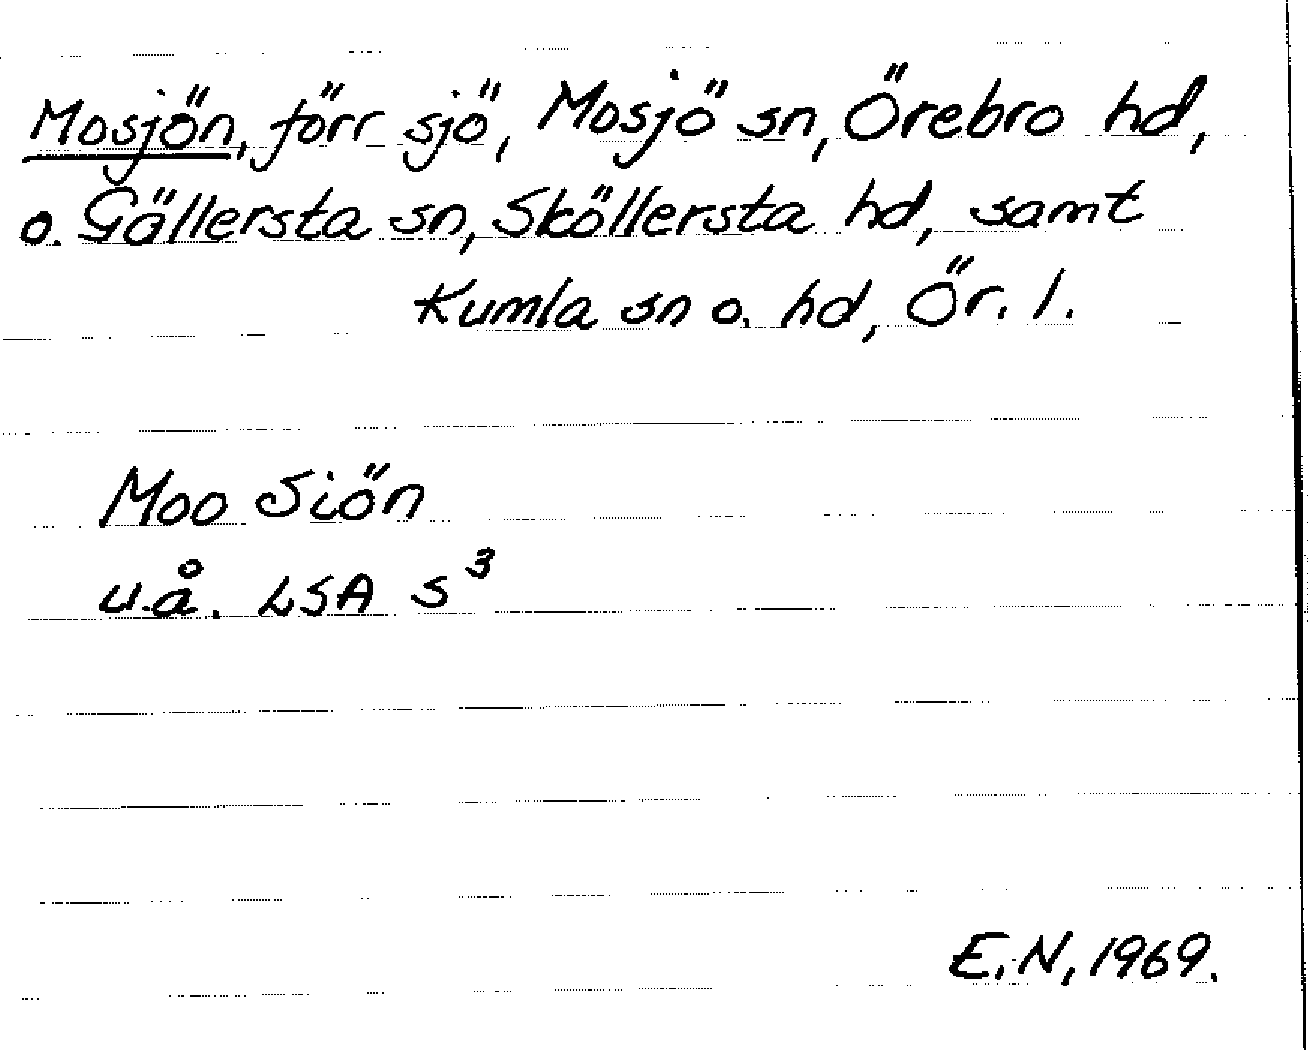 Mosjön, förr sjö, Mosjö sn, Örebro hd,
o. Gällersta sn, Sköllersta hd, samt
Kumla sn o. hd, Ör. l.
Moo Siön
u.å. LSA S³
E.N, 1969.